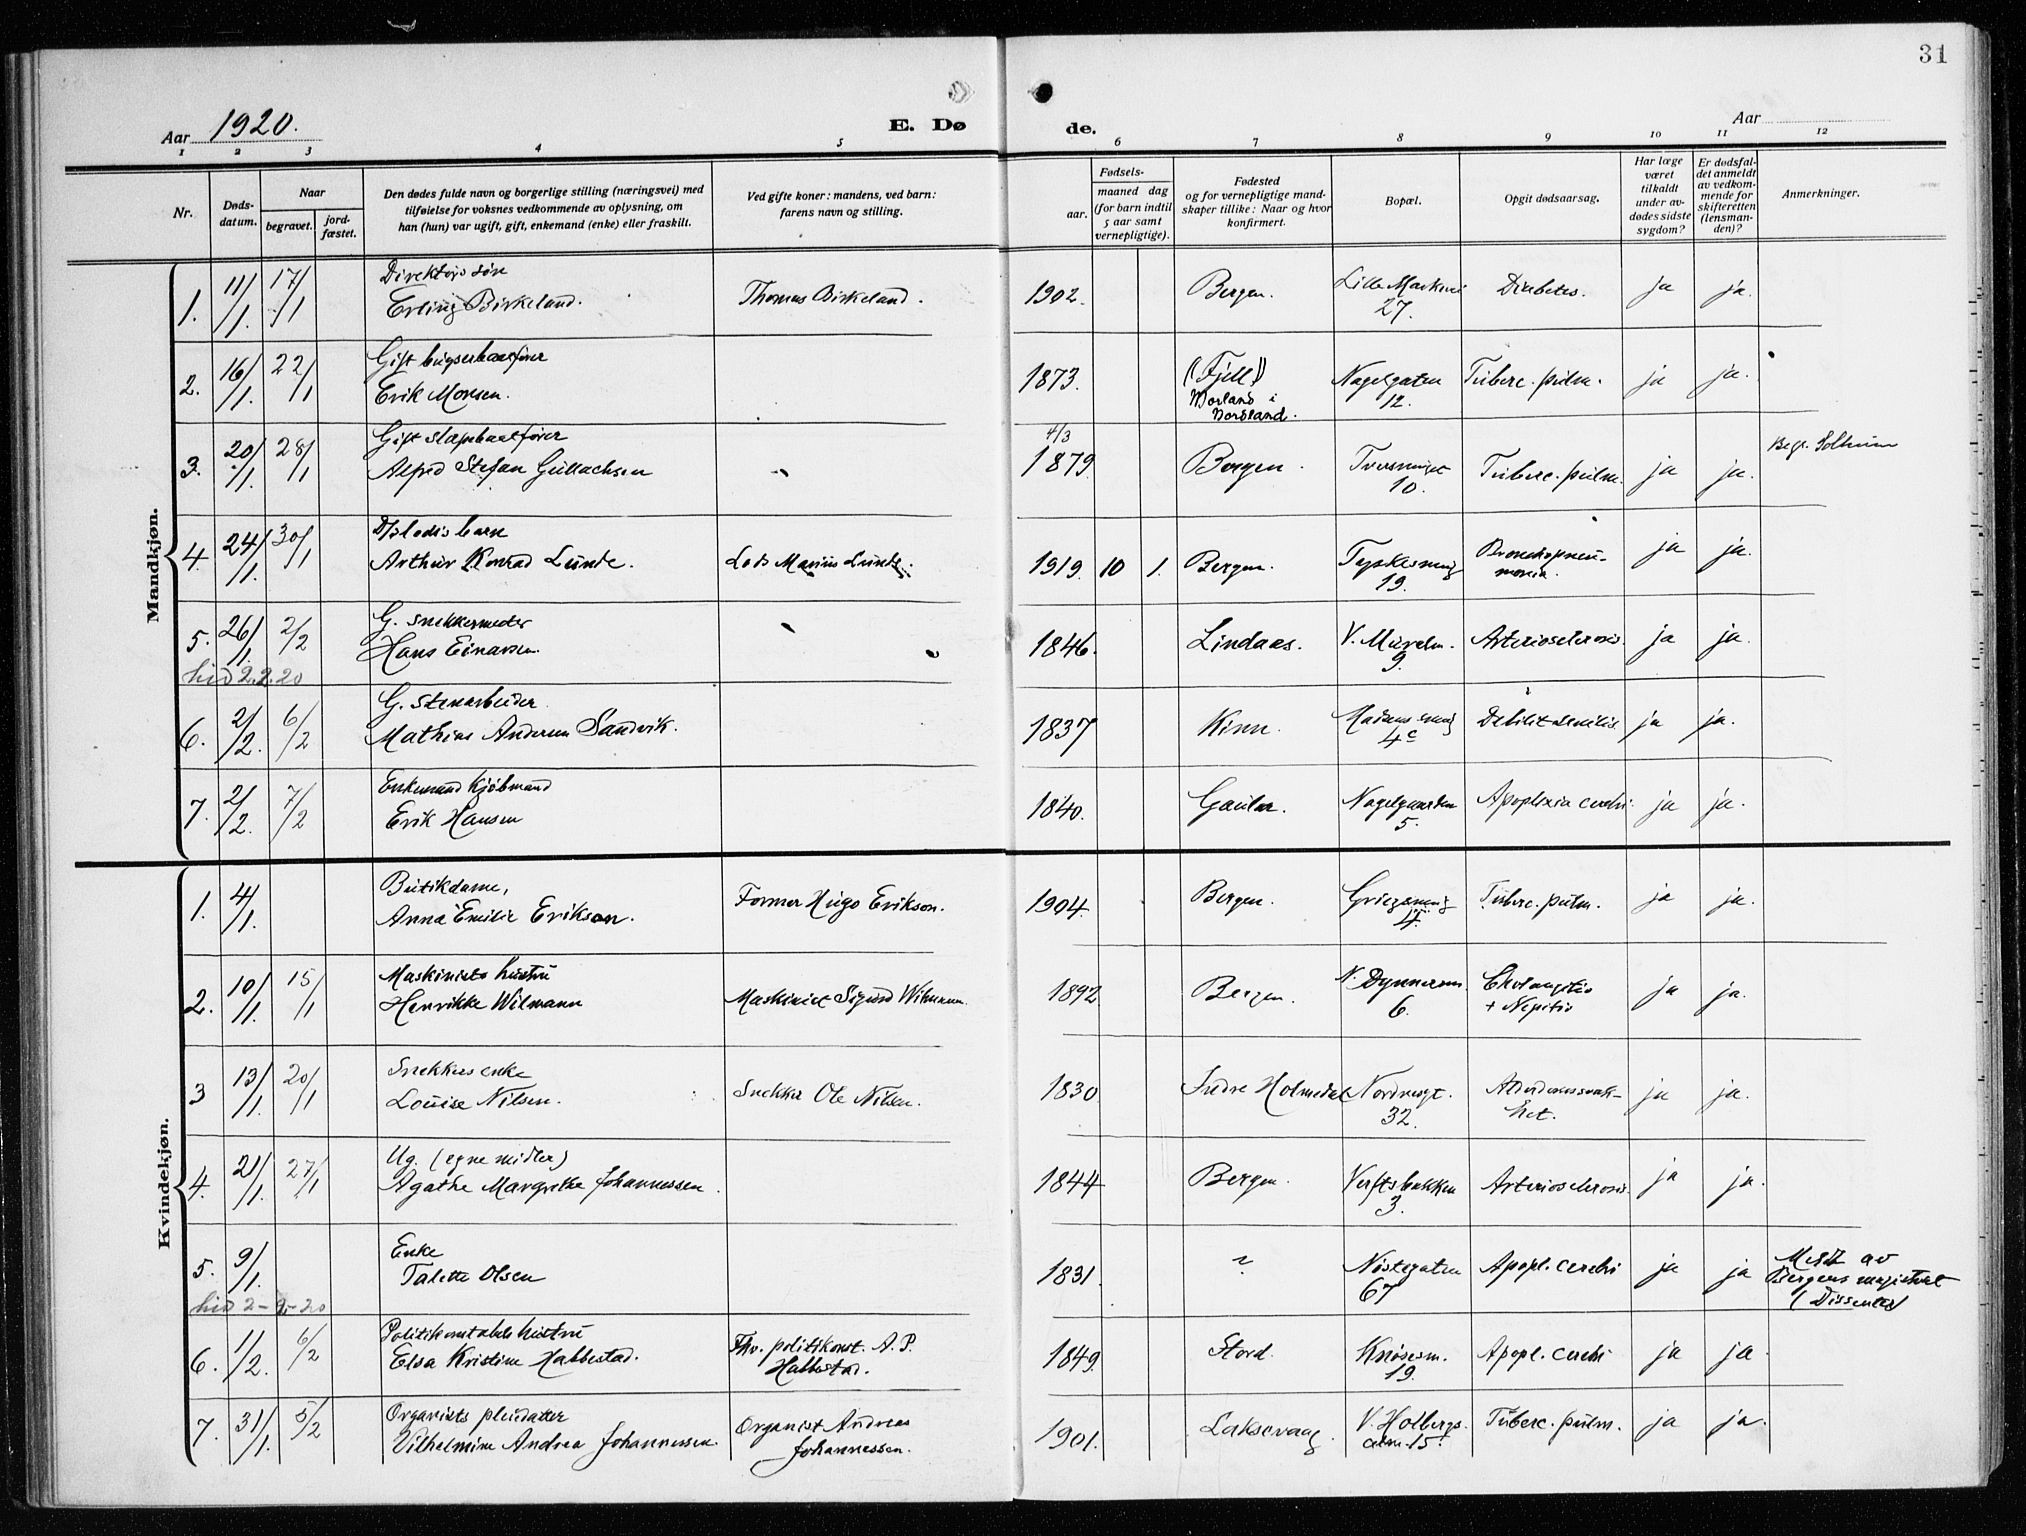 31
Aar 1920.
E. Dø
de.
Aar
1 2 3 4 5 6 7 8 9 10 11 12
Nr.
Døds-
datum.
Naar
begravet.
jord-
fæstet.
Den dødes fulde navn og borgerlige stilling (næringsvei) med
tilføielse for voksnes vedkommende av oplysning, om
han (hun) var ugift, gift, enkemand (enke) eller fraskilt.
Ved gifte koner: mandens, ved barn:
farens navn og stilling.
Fødsels-
aar.
maaned dag
(for barn indtil
5 aar samt
vernepligtige).
Fødested
og for vernepligtige mand-
skaper tillike: Naar og hvor
konfirmert.
Bopæl.
Opgit dødsaarsag.
Har læge
været
tilkaldt
under av-
dødes sidste
sygdom?
Er dødsfal-
det anmeldt
av vedkom-
mende for
skifteretten
(lensman-
den)?
Anmerkninger.
Mandkjøn.
Direktørs søn
1. 11/1. 17/1 Erling Birkeland. Thomas Birkeland. 1902. Bergen. Lille Markevei Diabetes. ja ja.
27.
Gift bugserbaatfører
2. 16/1. 22/1 Erik Monsen. 1873. (Fjell) Nagelgaten Tuberc. pulm. ja ja.
Norland i 12.
Nordland.
Gift slæpebaatfører 4/3
3. 20/1. 28/1 Alfred Stefan Gullachsen 1879. Bergen. 10. Tuberc. pulm. ja ja. Begr. Solheim
barn
4. 24/1. 30/1 Arthur Konrad Lunde. Lods Marius Lunde. 1919. 10 1. Bergen. Tyskesmug Bronchopneu-
19. monia. ja ja.
G. snekkermester
5. 26/1. 2/2 Hans Einarsen. 1846. Lindaas. V. Muralm. Arteriosclerosis. ja ja.
9.
hid 2.2.20
G. Stenarbeider
6. 2/2. 6/2 Mathias Andersen Sandvik. 1837 Kinn. Madsens smug Debilit. senilis. ja ja.
4c
Enkemand Kjøbmand
7. 2/2. 7/2 Erik Hansen 1840. Gaular. Nagelgaarden Apoplexia cerebri ja ja.
5.
Kvindekjøn.
Butikdame,
1. 4/1. Anna Emilie Erikson. Former Hugo Erikson. 1904. Bergen. Griegsmug Tuberc. pulm. ja ja.
4.
Maskinists hustru
2. 10/1. 15/1 Henrikke Wilmann Maskinist Sigurd Wilmann. 1892. Bergen. 6. ja ja.
Snekkers enke
3 13/1. 20/1 Louise Nilsen. Snekker Ole Nilsen. 1830 Indre Holmedal Nordnesgt. Alderdomssvak-
32. het. ja ja.
Ug. (egne midler)
4. 21/1. 27/1 Agathe Margrethe Johannessen. 1844 Bergen. Verftsbakken Arteriosclerosis. ja ja.
3.
Enke
5. 9/1. Talette Olsen 1831. ? Nøstegaten Apopl. cerebri ja ja Meldt av
67 Bergens magistrat
(Dissenter)
hid 2-2-20
Politikonstabels hustru
6. 1/2. 6/2 Elsa Kristine Habbestad. Fhv. politikonst. A. P. 1849. Stord. Knøsesm. Apopl. cerebri ja ja.
Habbestad. 19.
Organists pleiedatter
7. 31/1. 5/2 Vilhelmine Andrea Johannessen Organist Andreas 1901. Laksevaag. V. Holbergs- Tuberc. pulm. ja ja.
Johannessen. alm. 15.